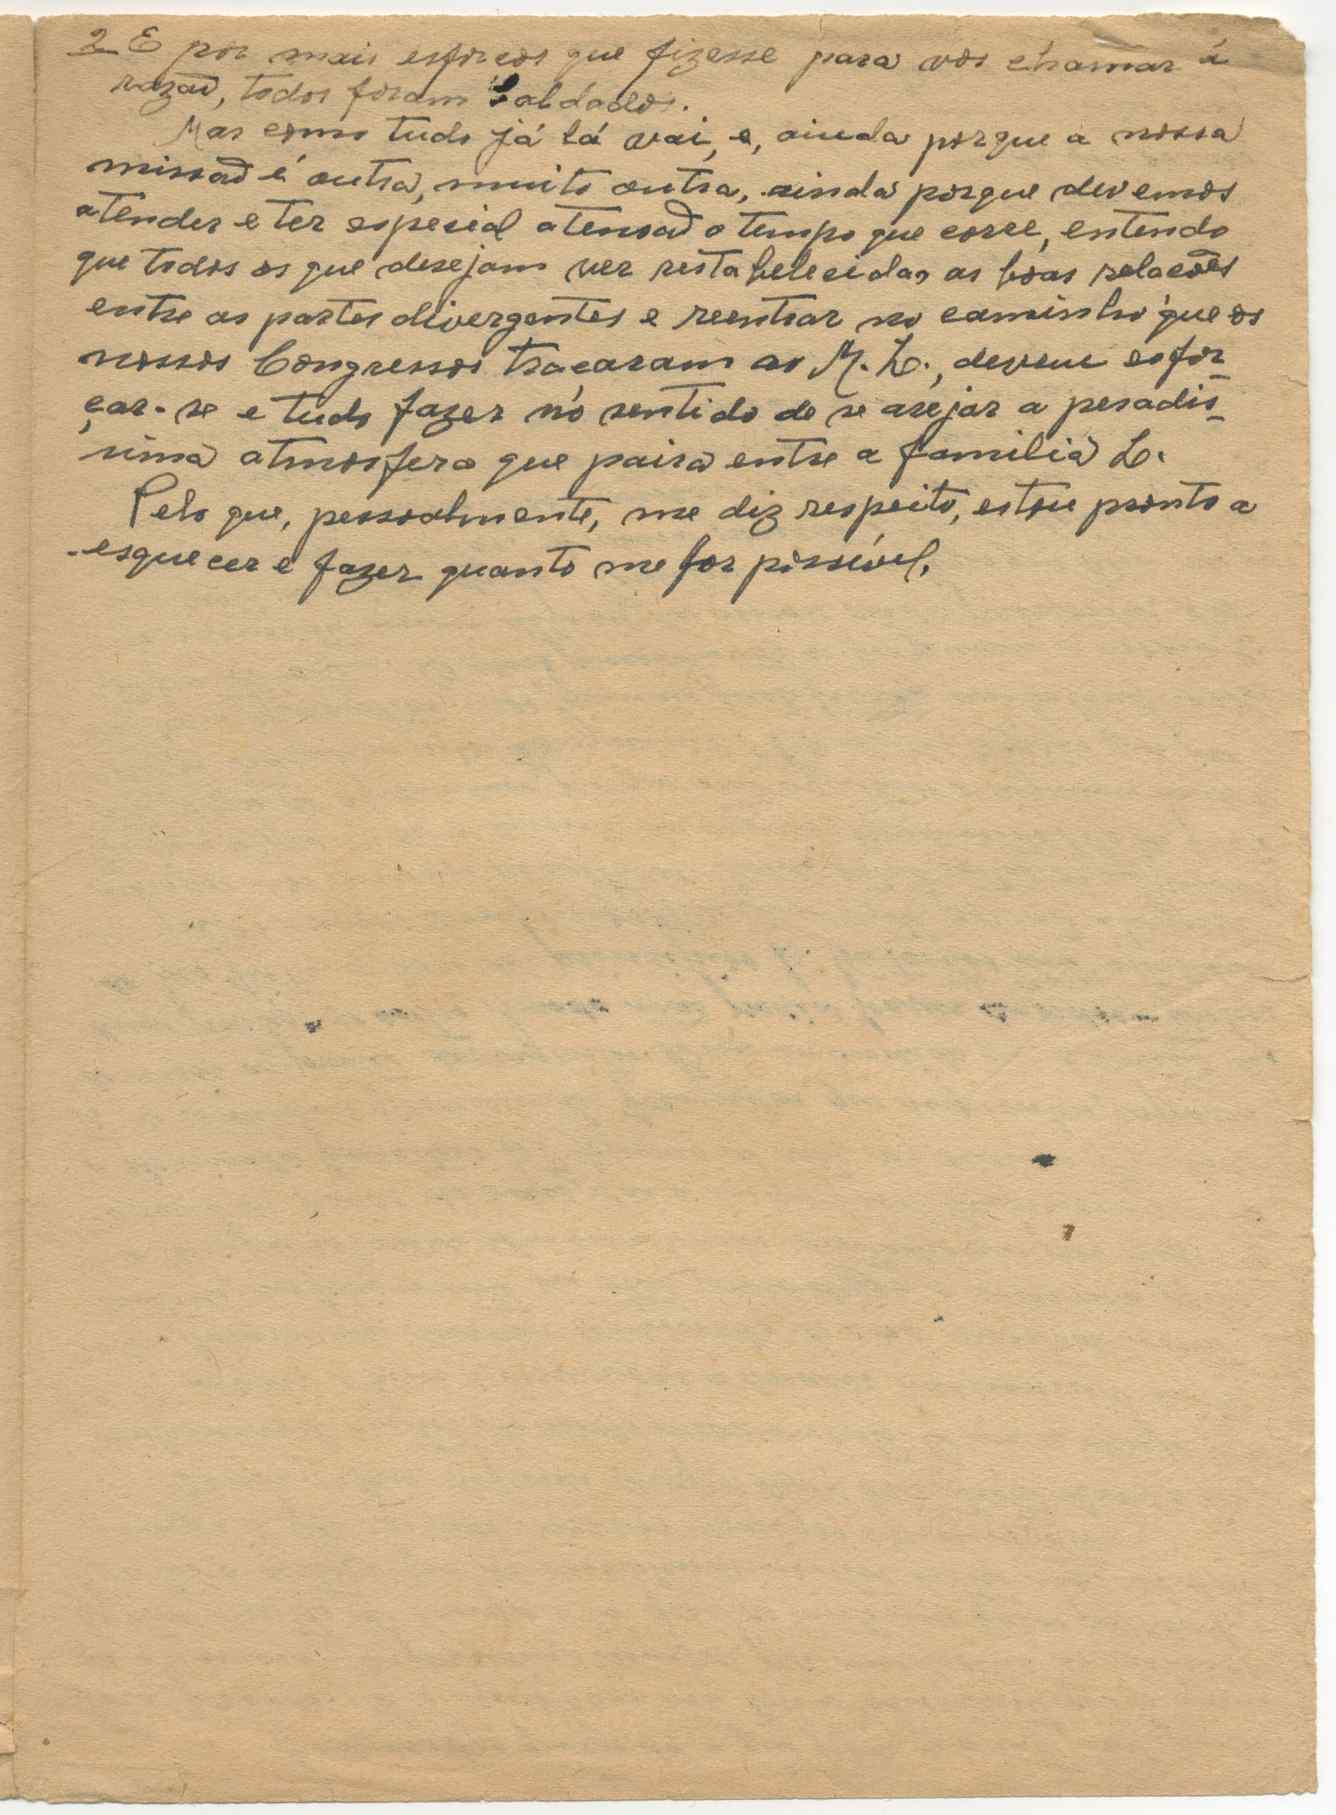 2 E por mais esforços que fizesse para vos chamar á
razaõ, todos foram baldados.
Mas como tudo já lá vai, e, ainda porque a nossa
missaõ é outra, muito outra, ainda porque devemos
atender e ter especial atensaõ o tempo que corre, entendo
que todos os que desejam ver restabelecidas as boas relacões
entre as partes divergentes e reentrar no caminho que os
nossos Congressos traçaram ao M. L., devem esfor-
çar-se e tudo fazer nó sentido de se arejar a pesadis-
sima atmosfera que paira entre a familia L.
Pelo que, pessoalmente, me diz respeito, estou pronto a
esquecer e fazer quanto me for possível.